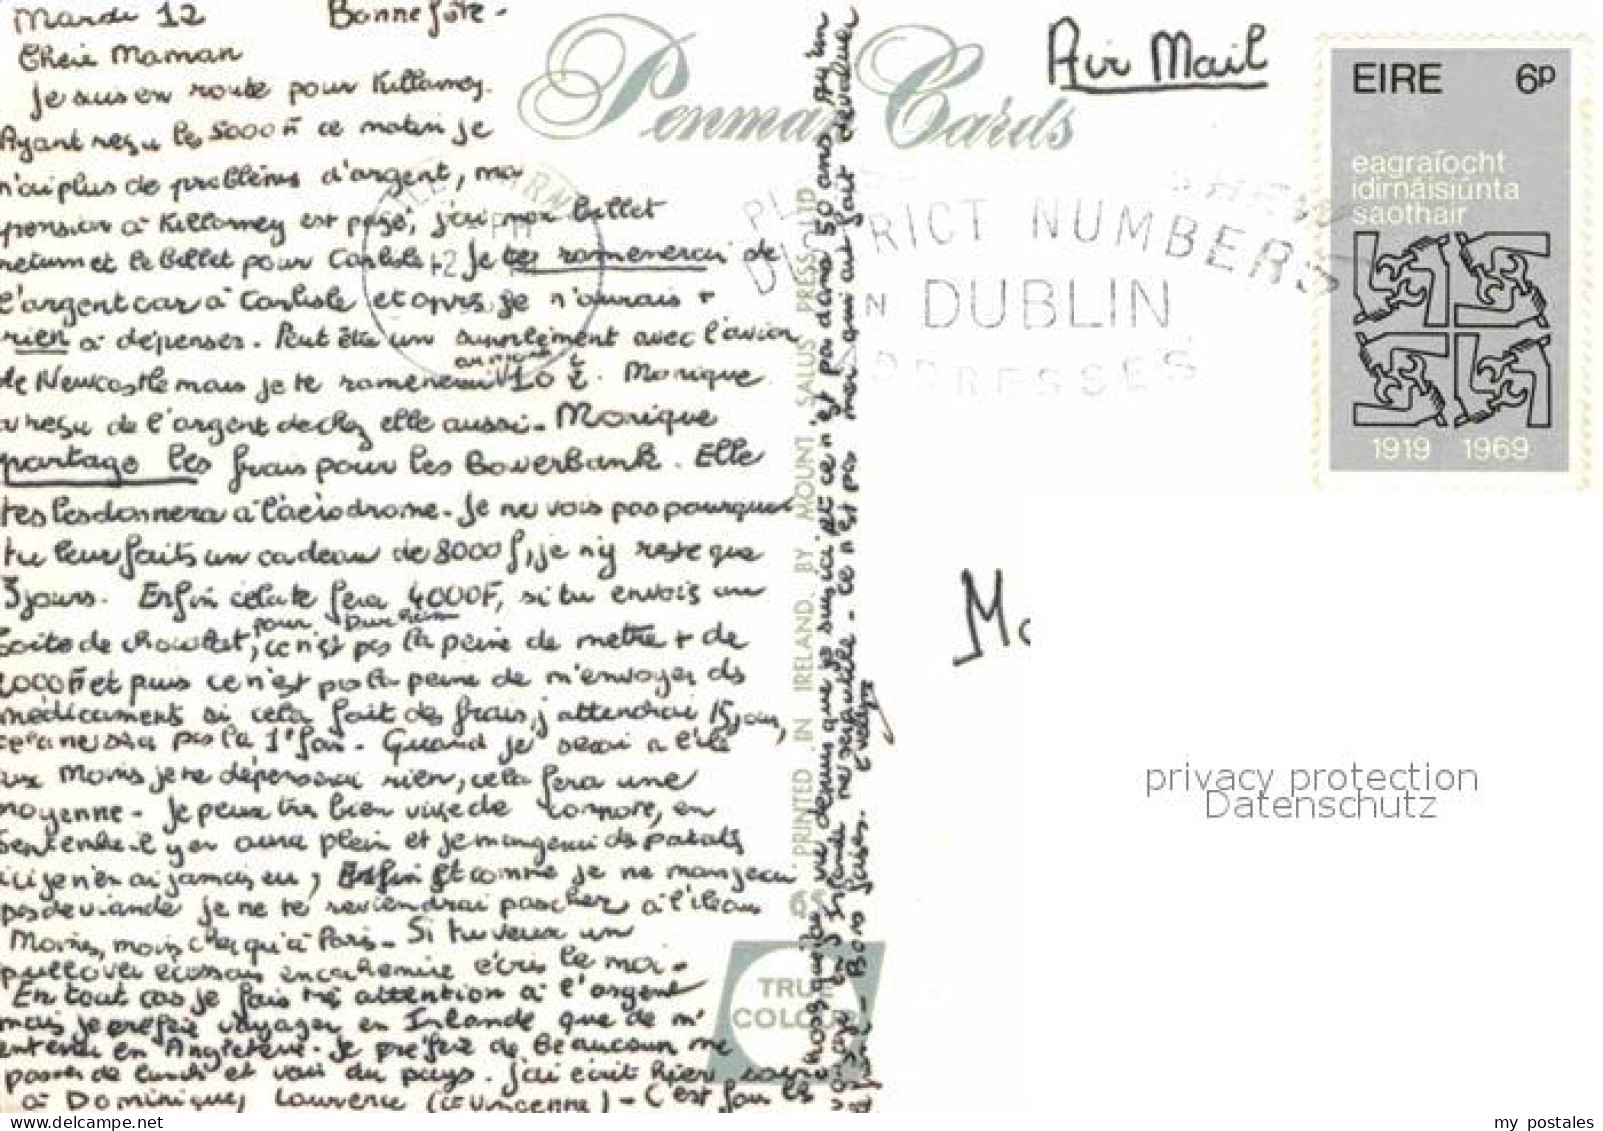 Mardi 12 Bonne fête -
Cherie Maman
Je suis en route pour Killarney.
Ayant reçu les 5000 F ce matin je
n'ai plus de problèmes d'argent, ma
pension à Killarney est payé, j'ai mon billet
return et le billet pour Carlisle Je te ramenerai de
l'argent car à Carlisle et après je n'aurais +
rien à dépenser. Peut être un supplément avec l'avion
de Newcastle mais je te ramenerai au moins 10 £. Monique
a reçu de l'argent de chez elle aussi. Monique
partage les frais pour les Boverbank. Elle
les donnera à l'aérodrome. Je ne vois pas pourquoi
tu leur faits un cadeau de 8000 f, je n'y reste que
3 jours. Enfin cela te fera 4000F, si tu envois une
boite de chocolat, pour Durheim ce n'est pas la peine de mettre + de
1000 F et puis ce n'est pas la peine de m'envoyer ds
medicaments si cela fait des frais, j'attendrai 15 jours,
cela ne sera pas la 1° fois. Quand je serai à l'île
aux Moines je ne dépenserai rien, cela fera une
moyenne. Je peux très bien vivre de en
Septembre il y en aura plein et je mangerai ds patates
ici je n'en ai jamais eu, Enfin Et comme je ne mangerai
pas de viande je ne te reviendrai pas cher à l'île aux
Moines, moins cher qu'à Paris. Si tu veux un
pullover écossais en cachemire écris le moi.
En tout cas je fais très attention à l'argent
mais je préfère voyager en Irlande que de m'
enterrer en Angleterre. Je préfère de Beaucoup me
passer de lunch et voir du pays. J'ai écrit hier soir
à Dominique, Laurence (et Vincenne) - C'est fou les
choses que j'ai vu depuis que je suis ici et ce n'est pas dans 50 ans qu'un
voyage en Irlande me sera utile - ce n'est pas moi qui ai fait dévaluer
le franc - Bons baisers. Evelyne
Penmar Cards
PRINTED IN IRELAND. BY MOUNT SALUS PRESS LTD
TRUE
COLOUR
Air Mail
EIRE 6p
eagraíocht
idirnáisiúnta
saothair
1919 1969
SHEW
DISTRICT NUMBERS
IN DUBLIN
ADDRESSES
privacy protection
Datenschutz
my postales